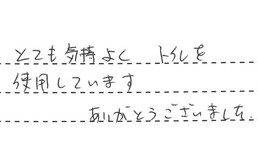 とても気持よく トイレを
使用しています
ありがとうございました.